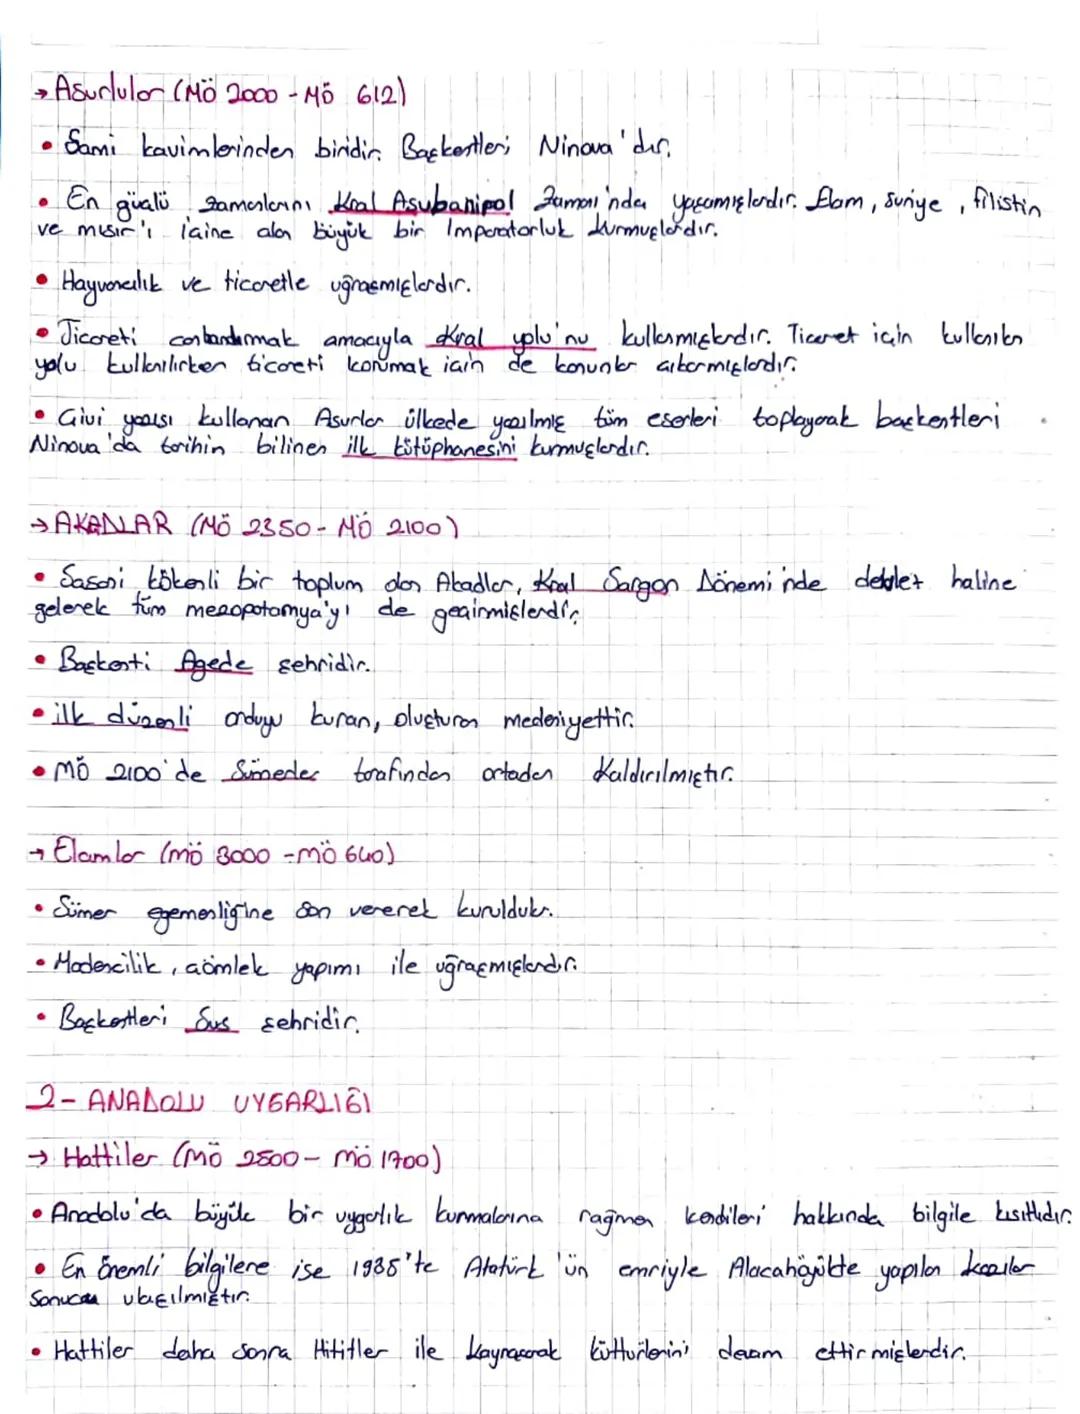 → Asurlular (MÖ 2000 - MÖ 612)
• Sami kavimlerinden biridir. Başkentleri Ninova'dır.
• En güçlü zamanlarını Kral Asubanipal Zamanı'nda yaşamışlardır. Elam, Suriye, filistin
ve mısır'ı içine alan büyük bir İmparatorluk kurmuşlardır.
• Hayvancılık ve ticaretle uğraşmışlardır.
• Ticareti canlandırmak amacıyla Kral yolu'nu kullanmışlardır. Ticaret için kullanılan
yolu kullanılırken ticareti korumak için de kanunlar çıkarmışlardır.
• Çivi yazısı kullanan Asurlar ülkede yazılmış tüm eserleri toplayarak başkentleri
Ninova'da tarihin bilinen ilk kütüphanesini kurmuşlardır.
→ AKADLAR (MÖ 2350 - MÖ 2100)
• Sasani kökenli bir toplum olan Akadlar, Kral Sargon Dönemi'nde devlet haline
gelerek tüm mezopotamya'yı de geçirmişlerdir.
• Başkenti Agede şehridir.
• ilk düzenli orduyu kuran, oluşturan medeniyettir.
• MÖ 2100'de Sümerler tarafından ortadan Kaldırılmıştır.
→ Elamlar (mö 3000 - mö 640)
• Sümer egemenliğine son vererek kuruldular.
• Madencilik, çömlek yapımı ile uğraşmışlardır.
• Başkentleri Sus şehridir.
2- ANADOLU UYGARLIĞI
→ Hattiler (MÖ 2500 - mö 1700)
• Anadolu'da büyük bir uygarlık kurmalarına rağmen kendileri hakkında bilgile kısıtlıdır.
• En önemli bilgilere ise 1935'te Atatürk'ün emriyle Alacahöyükte yapılan kazılar
Sonucu ulaşılmıştır.
• Hattiler daha sonra Hititler ile kaynaşarak kültürlerini devam ettirmişlerdir.